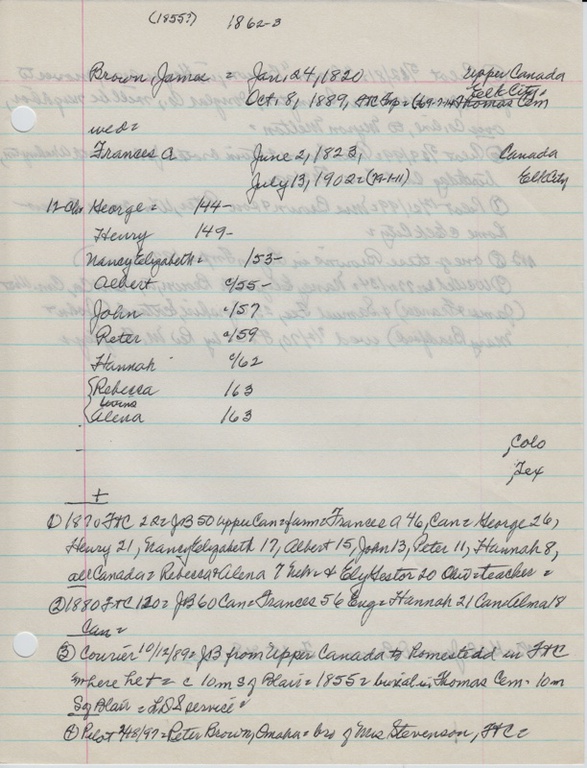 (1855?) 1862-3
Brown, James = Jan. 24, 1820 Upper Canada
Oct. 8, 1889, Thomas Cem Elk City
wed=
Frances A June 2, 1823, Canada
July 13, 1902 = (79-1-11) Elk City
George = 144-
Henry 149-
Nancy Elizabeth = 153-
Albert c/55-
John c/57
Peter c/59
Hannah c/62
Rebecca 163
twins
Alena 163
, Colo
, Tex
+
① 1870 FtC 22 = JB 50 upper Can = farm = Frances A 46, Can = George 26,
Henry 21, Nancy Elizabeth 17, Albert 15, John 13, Peter 11, Hannah 8,
all Canada = Rebecca & Alena 7 Neb = & Ely Nestor 20 Ohio = teacher =
② 1880 FtC 120 = JB 60 Can = Frances 56 Eng = Hannah 21 Can = Alma 18
Can =
③ Courier 10/12/89 = JB from Upper Canada to homestead in FtC
where he + = c 10m sq Blair = 1855 = burial in Thomas Cem - 10m
Sq Blair = LDS service =
④ Pilot 2/18/97 = Peter Brown, Omaha = bro of Mrs Stevenson, FtC =